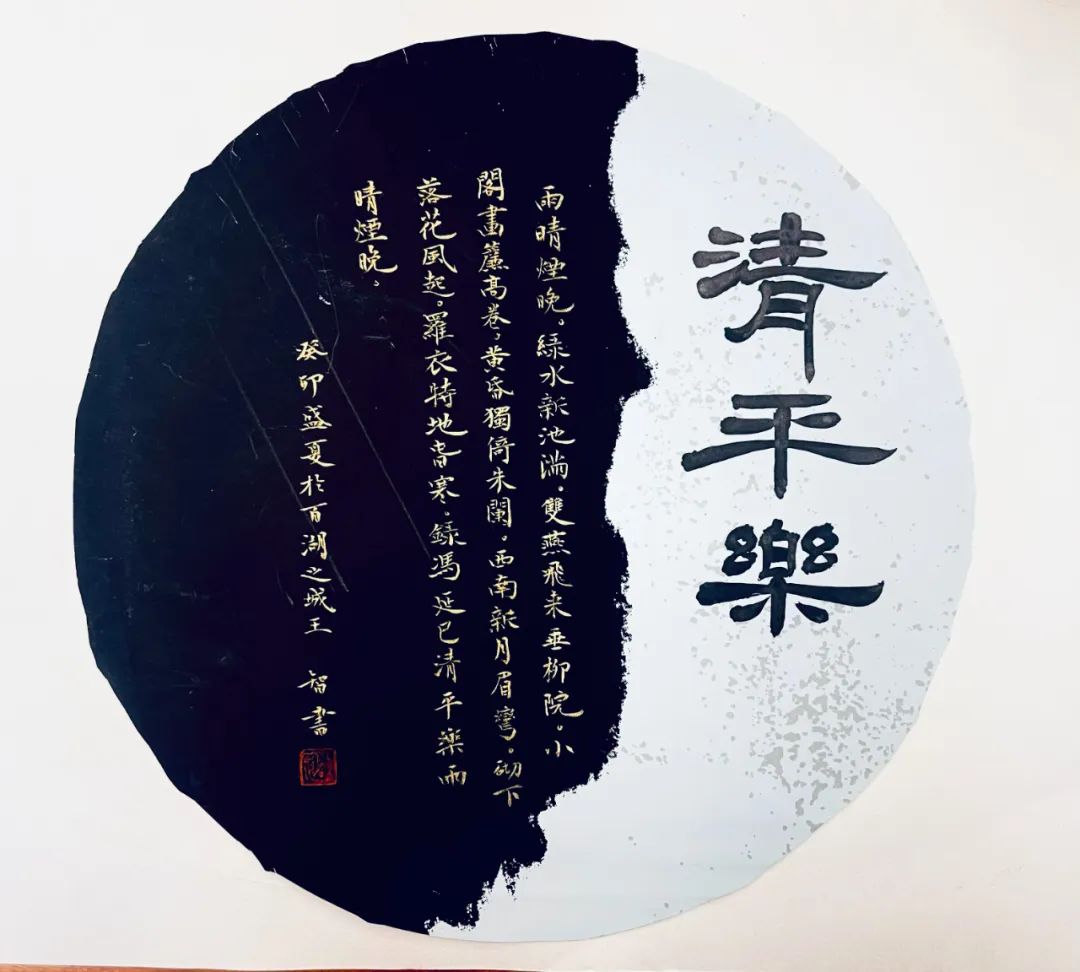 清平樂
雨晴煙晚。綠水新池滿。雙燕飛来垂柳院。小
閣畫簾高卷。黃昏獨倚朱闌。西南新月眉彎。砌下
落花風起。羅衣特地春寒。錄馮延巳清平樂雨
晴煙晚。
癸卯盛夏於百湖之城王智書